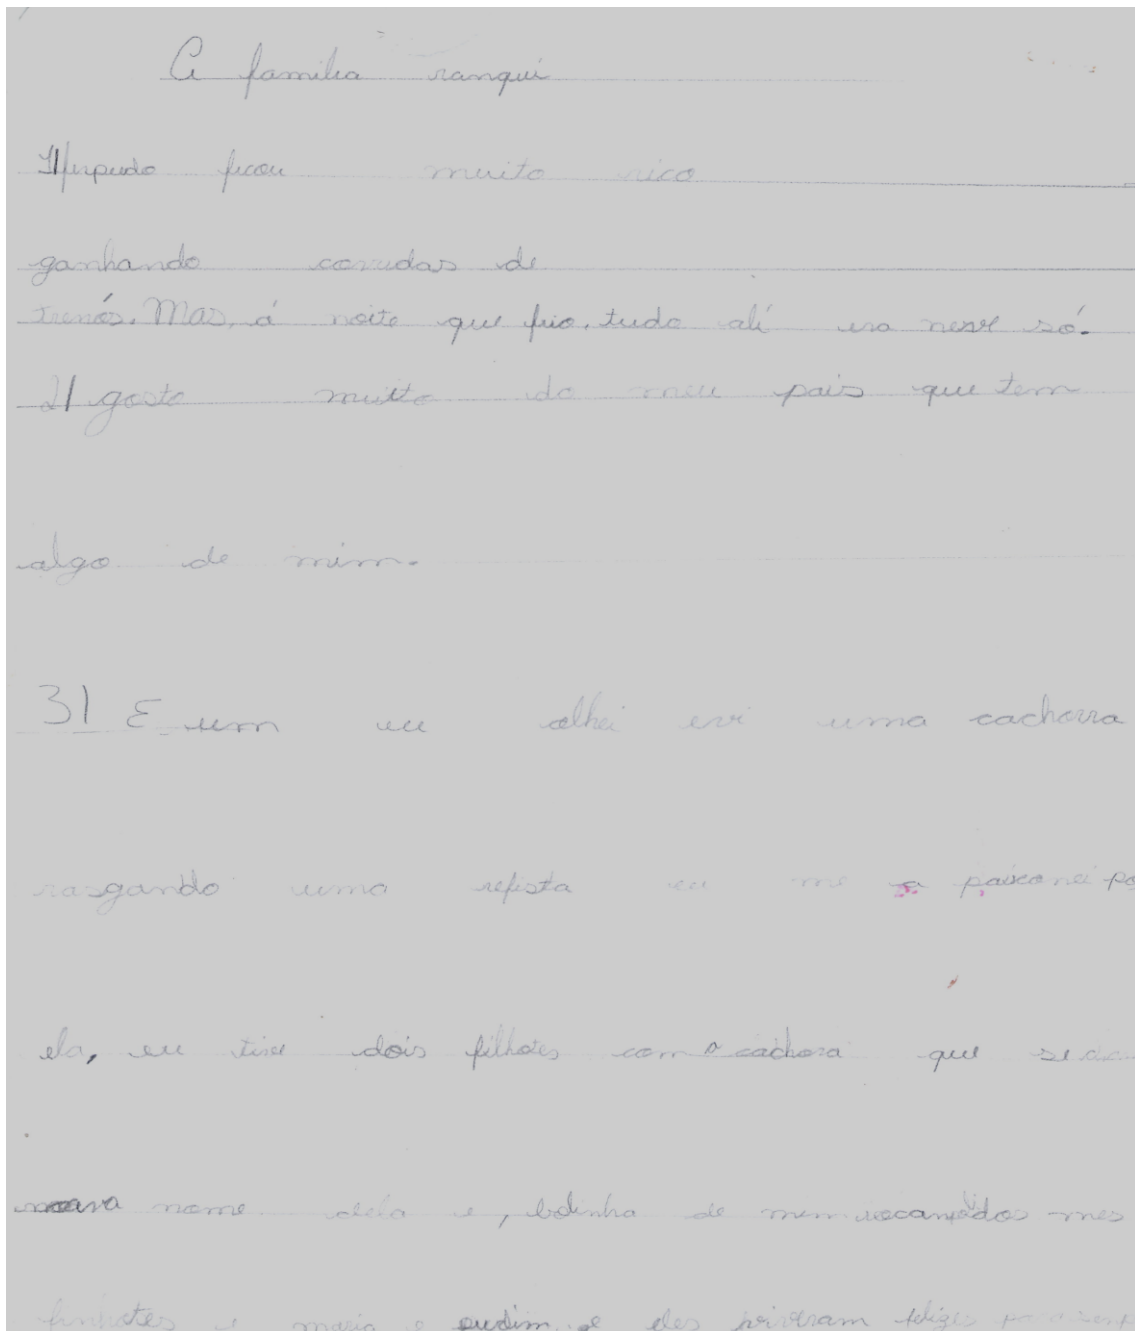 A familia ranqui
ficou muito rico
ganhando corridas de
trenós. Mas, á noite que frio, tudo alí era neve só.
2| gosto muito do meu pais que tem
algo de mim.
3| E um eu olhei evi uma cachorra
rasgando uma refista eu me a paixonei po
ela, eu tive dois filhotes com a cachora que se
nome dela e, bolinha de mes
e maria e pudim e eles viveram felizes